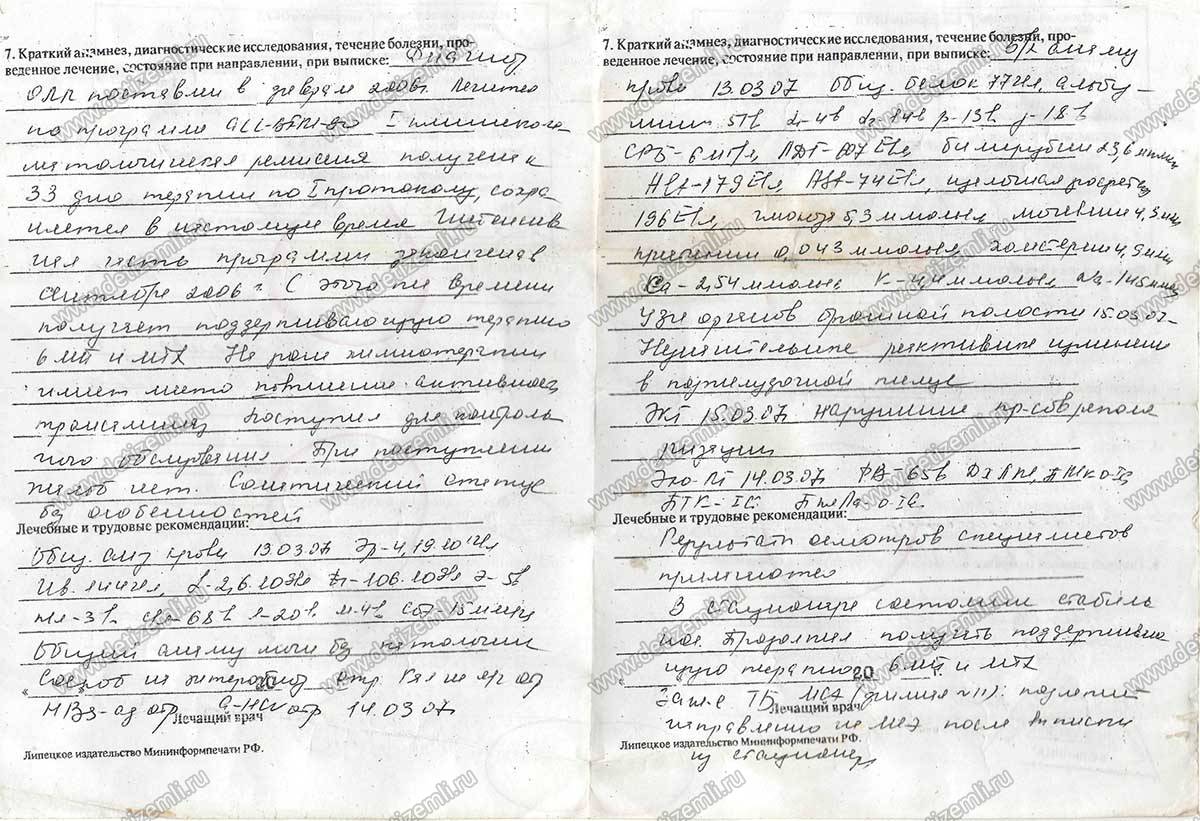 7. Краткий анамнез, диагностические исследования, течение болезни, про-
веденное лечение, состояние при направлении, при выписке: Диагноз
ОЛЛ поставлен в феврале 2006г. Лечится
по программе ALL-BFM-90 I клиникоге-
матологическая ремиссия получена к
33 дню терапии по I протоколу, сохра
няется в настоящее время Интенсив
ная часть программы закончена в
сентябре 2006 г. С этого же времени
получает поддерживающую терапию
6 МП и МТХ На фоне химиотерапии
имеет место повышение активности
трансаминаз Поступил для контроль
ного обследования При поступлении
жалоб нет. Соматический статус
без особенностей
Лечебные и трудовые рекомендации:
Общ. анализ крови 13.03.07 Эр-4,19·10
L-2,6·10 Тр-106·10 Э-5%
п/я-3% с/я-68% л-20% м-4% СОЭ-15 мм/ч
Общий анализ мочи без патологии
Соскоб на энтеробиоз отр. Кал на я/г отр
20
HBs-ag отр a-HCV отр 14.03.07
Лечащий врач
Липецкое издательство Мининформпечати РФ.
7. Краткий анамнез, диагностические исследования, течение болезни, про-
веденное лечение, состояние при направлении, при выписке: Б/х анализ
крови 13.03.07 Общ. белок 77 г/л, альбу-
мин 51% α1-4% α2-14% β-13% γ-18%
СРБ-6 мг/л, ЛДГ-607 Е/л, билирубин 23,6 мкмоль
АЛТ-179 Е/л, АСТ-74 Е/л, щелочная фосфатаза
196 Е/л, глюкоза 5,3 ммоль/л, мочевина 4,3 ммоль
креатинин 0,043 ммоль/л холестерин 4,9 ммоль
Ca-2,54 ммоль/л K-4,4 ммоль/л Na-145 ммоль
УЗИ органов брюшной полости 15.03.07-
Незначительные реактивные изменения
в поджелудочной железе
ЭКГ 15.03.07 Нарушение пр-сов реполя
ризации
Эхо-КГ 14.03.07 ФВ-65% ДХЛЖ, ТМК о-Iст
ТТК-Iст.
Лечебные и трудовые рекомендации:
Результаты осмотров специалистов
прилагаются
В стационаре состояние стабиль
ное. Продолжил получать поддержива
ющую терапию 6 МП и МТХ
20 г.
подлежит
Лечащий врач
направлению на МСЭ после выписки
Липецкое издательство Мининформпечати РФ.
из стационара
www.detizemli.ru